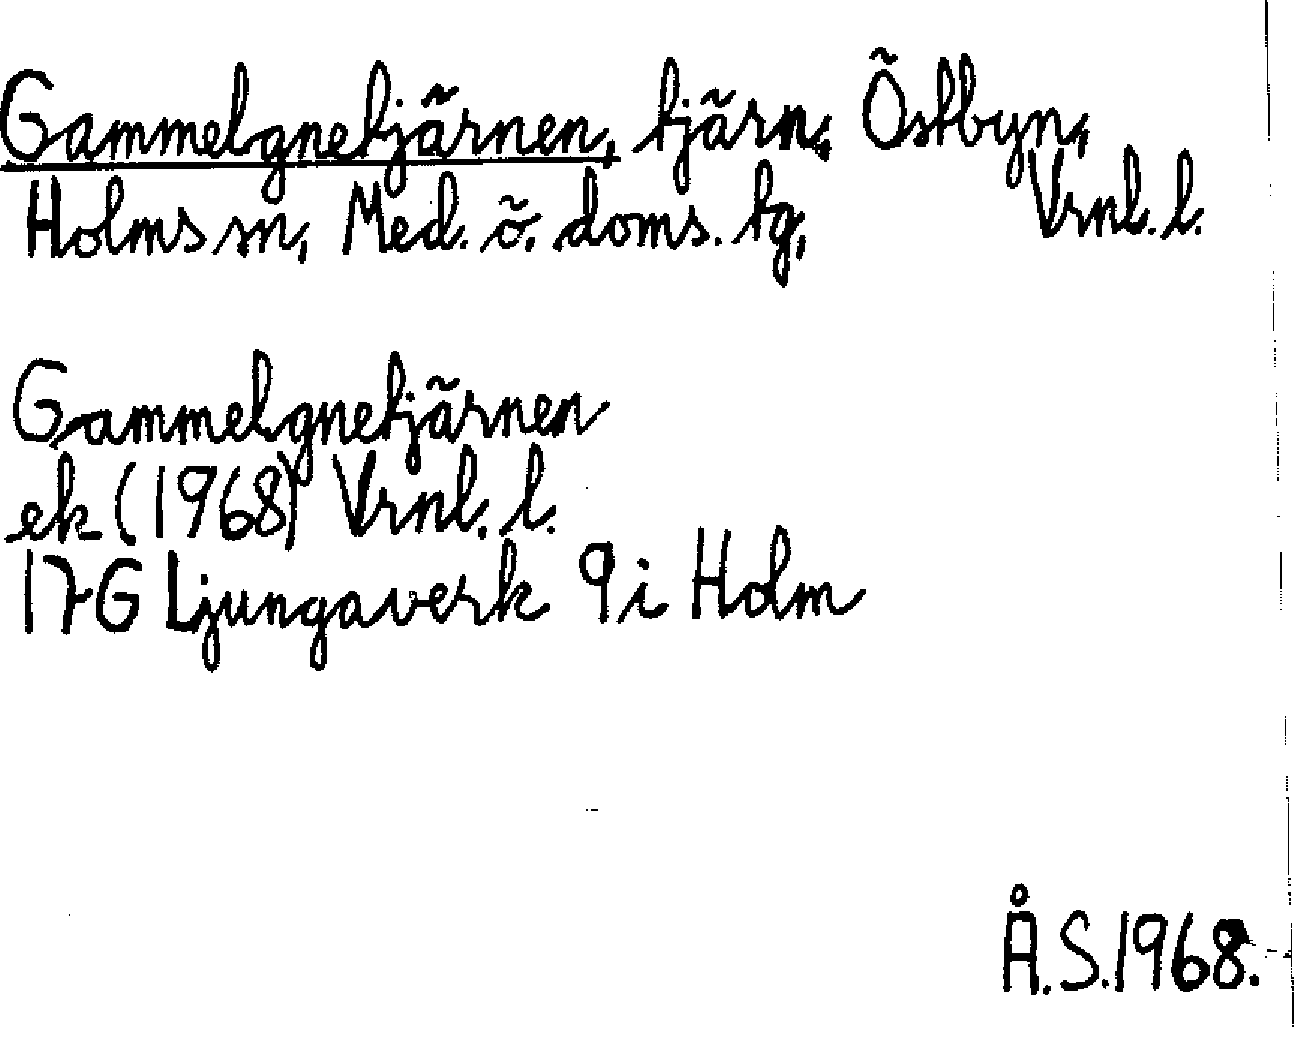 Gammelgnetjärnen, tjärn, Östbyn,
Holms sn, Med. ö. doms. tg, Vrnl. l.
Gammelgnetjärnen
ek (1968) Vrnl. l.
17G Ljungaverk 9i Holm
Å.S.1968.